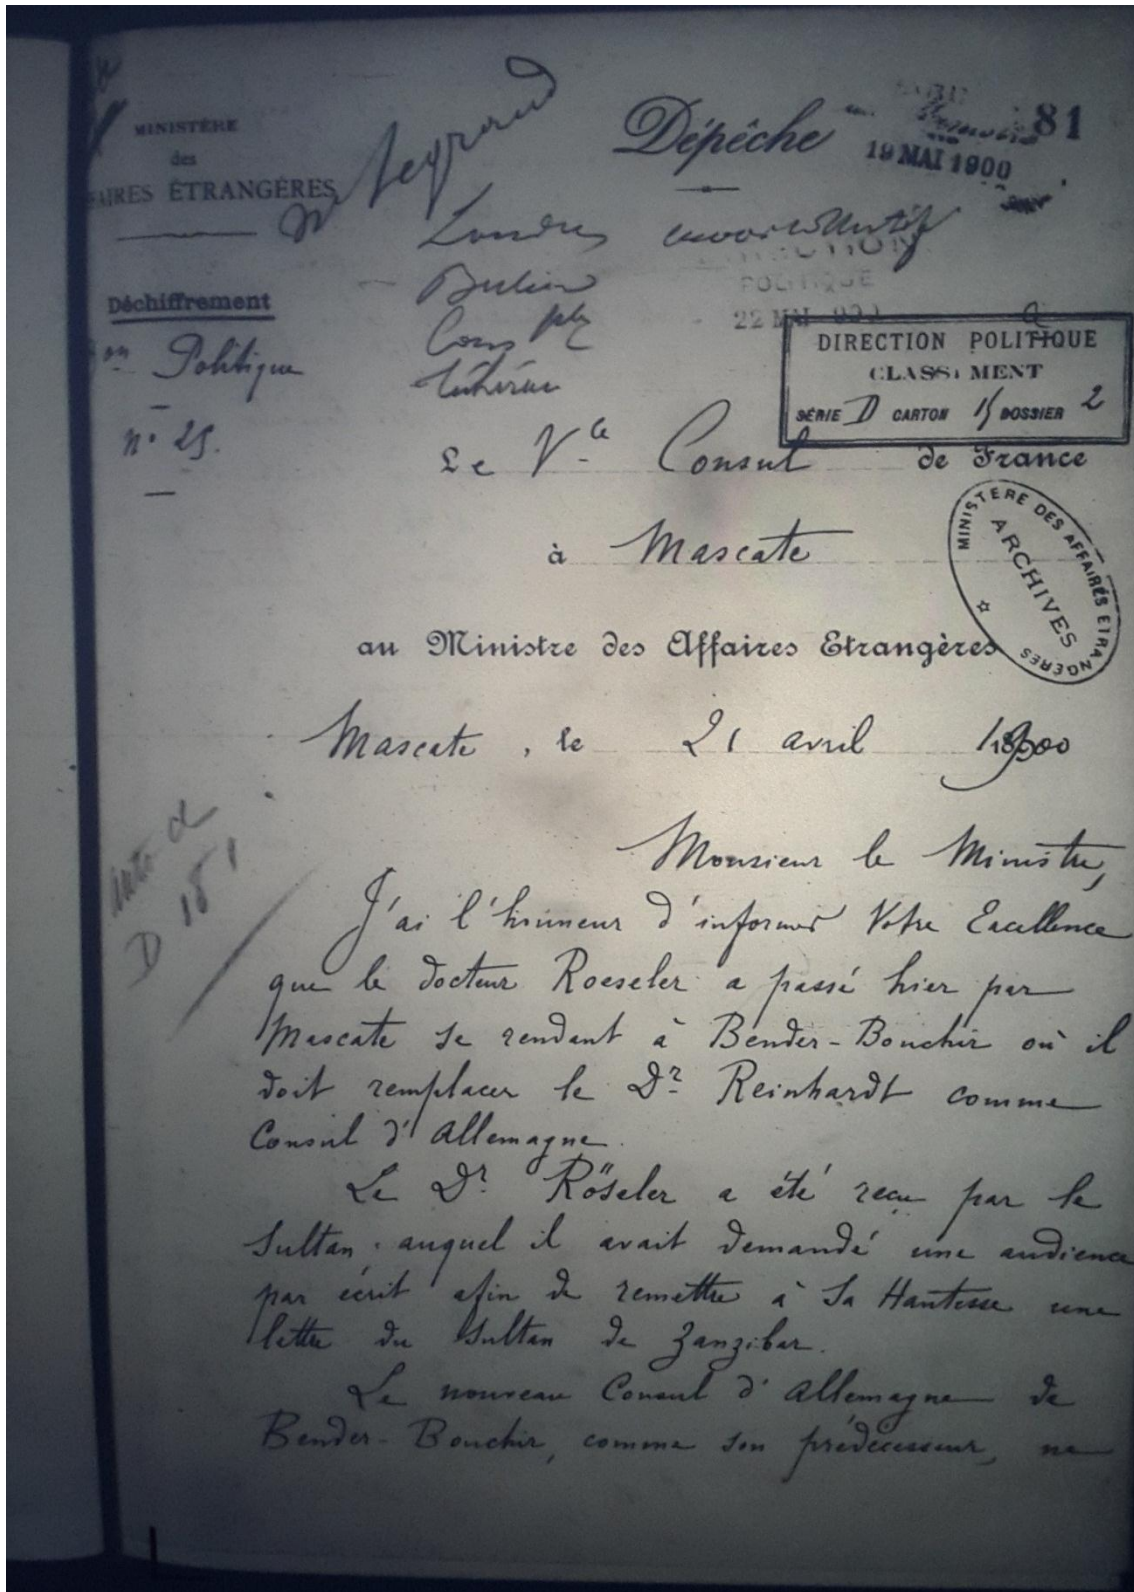 MINISTÈRE
des
AFFAIRES ÉTRANGÈRES
Dépêche
81
19 MAI 1900
Londres
Déchiffrement
Berlin
POLITIQUE
22 MAI
Consple
Téhéran
on Politique
DIRECTION POLITIQUE
CLASSEMENT
SÉRIE D CARTON 15 DOSSIER 2
n° 25.
Le Vce Consul de France
à Mascate
MINISTERE DES AFFAIRES ETRANGERES
ARCHIVES
au Ministre des Affaires Etrangères
Mascate, le 21 avril 1900
D 15 1
Monsieur le Ministre,
J'ai l'honneur d'informer Votre Excellence
que le docteur Roeseler a passé hier par
Mascate se rendant à Bender-Bouchir où il
doit remplacer le Dr. Reinhardt comme
Consul d'Allemagne.
Le Dr. Röseler a été reçu par le
Sultan auquel il avait demandé une audience
par écrit afin de remettre à Sa Hautesse une
lettre du Sultan de Zanzibar.
Le nouveau Consul d'Allemagne de
Bender-Bouchir, comme son prédécesseur, ne